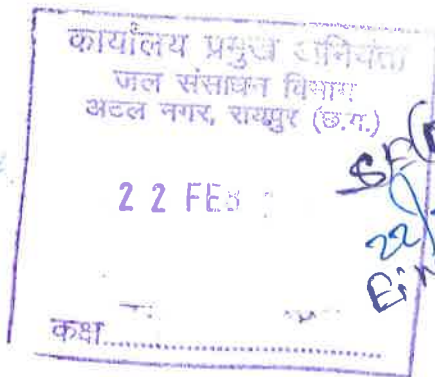 कार्यालय प्रमुख अभियंता
जल संसाधन विभाग
अटल नगर, रायपुर (छ.ग.)
SE(
22 FEB
22/
Ein
कक्ष..............................